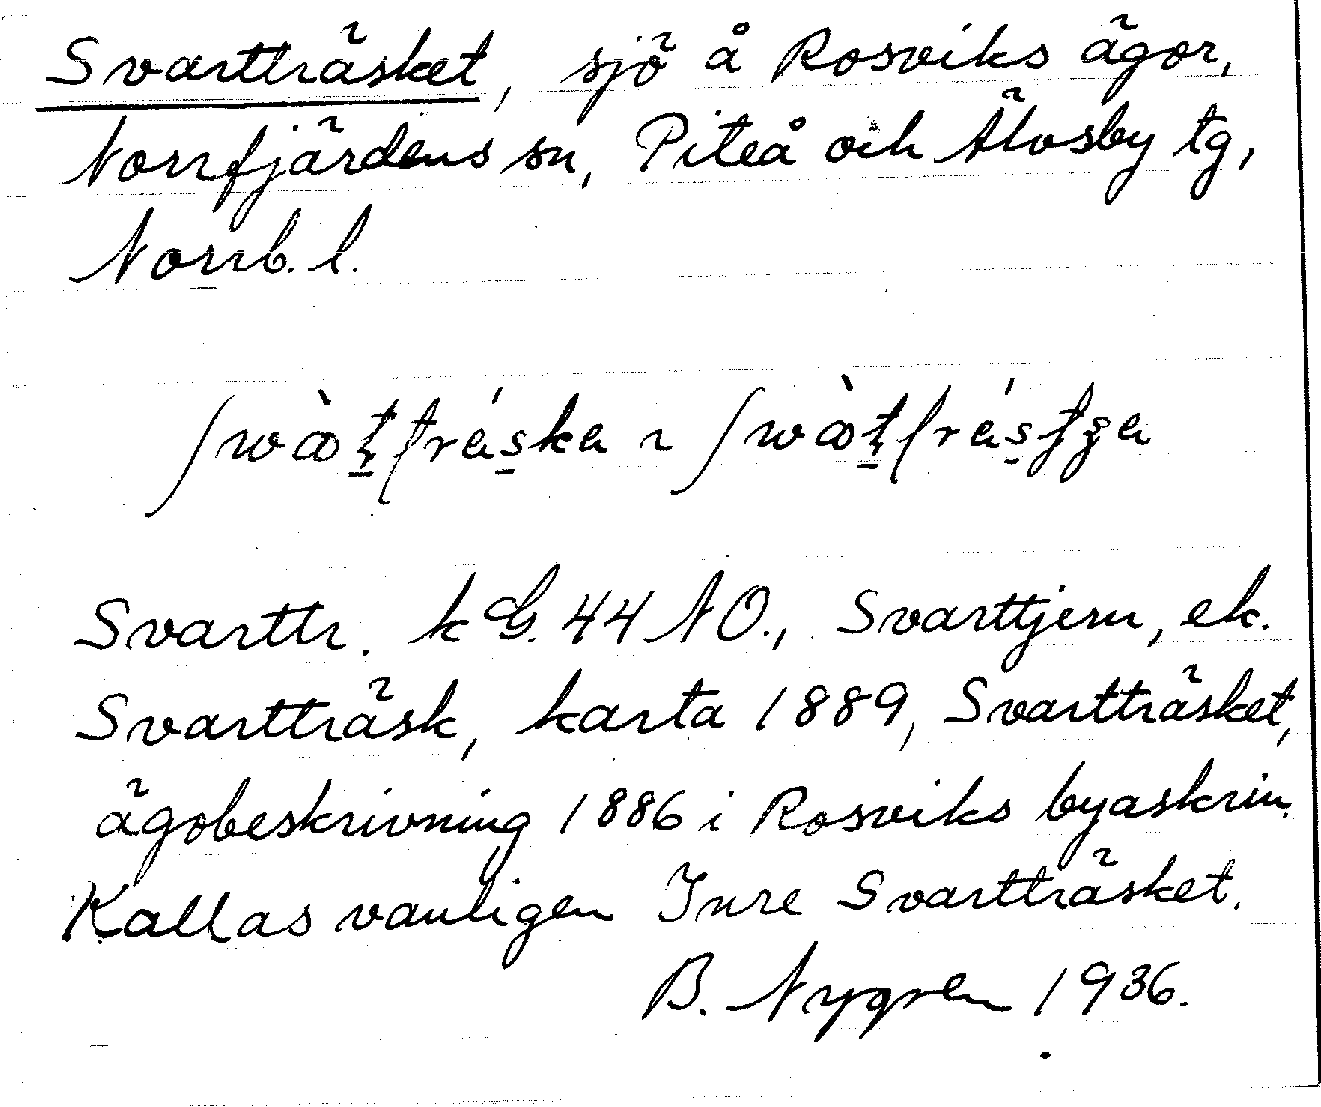 Svartträsket, sjö å Rosviks ägor,
Norrfjärdens sn, Piteå och Älvsby tg,
Norrb. l.
Svarttr. k G. 44 NO., Svarttjern, ek.
Svartträsk, karta 1889, Svartträsket,
ägobeskrivning 1886 i Rosviks byaskrin.
Kallas vanligen Inre Svartträsket.
B. Nygren 1936.